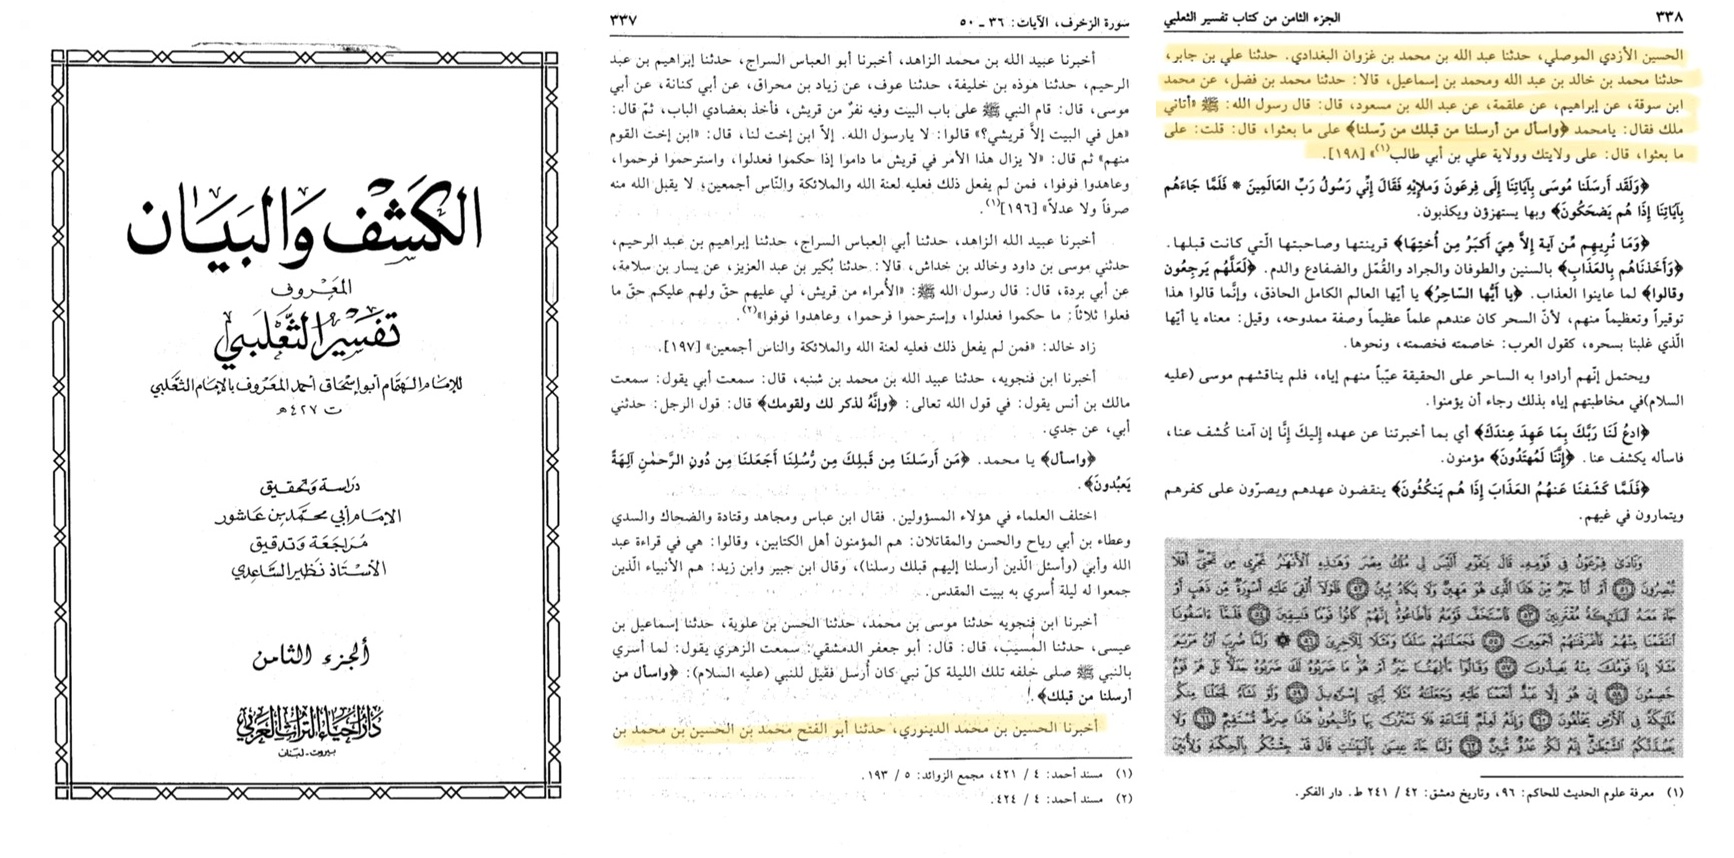 الكشف والبيان
المعروف
تفسير الثعلبي
للإمام الهمام أبو إسحاق أحمد المعروف بالإمام الثعلبي
ت ٤٢٧ هـ
دراسة وتحقيق
الإمام أبي محمد بن عاشور
مراجعة وتدقيق
الأستاذ نظير الساعدي
الجزء الثامن
دار إحياء التراث العربي
بيروت - لبنان
سورة الزخرف، الآيات: ٣٦ ـ ٥٠
٣٣٧
أخبرنا عبيد الله بن محمد الزاهد، أخبرنا أبو العباس السراج، حدثنا إبراهيم بن عبد
الرحيم، حدثنا هوذه بن خليفة، حدثنا عوف، عن زياد بن محراق، عن أبي كنانة، عن أبي
موسى، قال: قام النبي ﷺ على باب البيت وفيه نفرٌ من قريش، فأخذ بعضادي الباب، ثمّ قال:
«هل في البيت إلاَّ قريشي؟» قالوا: لا يارسول الله. إلاّ ابن إخت لنا، قال: «ابن إخت القوم
منهم» ثم قال: «لا يزال هذا الأمر في قريش ما داموا إذا حكموا فعدلوا، واسترحموا فرحموا،
وعاهدوا فوفوا، فمن لم يفعل ذلك فعليه لعنة الله والملائكة والنّاس أجمعين؛ لا يقبل الله منه
صرفاً ولا عدلاً» [١٩٦](١).
أخبرنا عبيد الله الزاهد، حدثنا أبي العباس السراج، حدثنا إبراهيم بن عبد الرحيم،
حدثني موسى بن داود وخالد بن خداش، قالا: حدثنا بُكير بن عبد العزيز، عن يسار بن سلامة،
عن أبي بردة، قال: قال رسول الله ﷺ: «الأُمراء من قريش، لي عليهم حقّ ولهم عليكم حقّ ما
فعلوا ثلاثاً: ما حكموا فعدلوا، وإسترحموا فرحموا، وعاهدوا فوفوا»(٢).
زاد خالد: «فمن لم يفعل ذلك فعليه لعنة الله والملائكة والناس أجمعين» [١٩٧].
أخبرنا ابن فنجويه، حدثنا عبيد الله بن محمد بن شنبه، قال: سمعت أبي يقول: سمعت
مالك بن أنس يقول: في قول الله تعالى: ﴿وإنَّهُ لذكر لك ولقومك﴾ قال: قول الرجل: حدثني
أبي، عن جدي.
﴿واسأل﴾ يا محمد. ﴿مَن أَرسَلنَا مِن قَبلِكَ مِن رُّسُلِنَا أَجَعَلنَا مِن دُونِ الرَّحمٰنِ آلِهَةً
يَعبُدونَ﴾.
اختلف العلماء في هؤلاء المسؤولين. فقال ابن عباس ومجاهد وقتادة والضحاك والسدي
وعطاء بن أبي رياح والحسن والمقاتلان: هم المؤمنون أهل الكتابين، وقالوا: هي في قراءة عبد
الله وأبي (وأسئل الّذين أرسلنا إليهم قبلك رسلنا)، وقال ابن جبير وابن زيد: هم الأنبياء الّذين
جمعوا له ليلة أُسري به ببيت المقدس.
أخبرنا ابن فنجويه حدثنا موسى بن محمد، حدثنا الحسن بن علوية، حدثنا إسماعيل بن
عيسى، حدثنا المُسيبَ، قال: قال: أبو جعفر الدمشقي: سمعت الزهري يقول: لما أسري
بالنبي ﷺ صلى خلفه تلك الليلة كلّ نبي كان أُرسل فقيل للنبي (عليه السلام): ﴿واسأل من
أرسلنا من قبلك﴾.
أخبرنا الحسين بن محمد الدينوري، حدثنا أبو الفتح محمد بن الحسين بن محمد بن
(١) مسند أحمد: ٤ / ٤٢١، مجمع الزوائد: ٥ / ١٩٣.
(٢) مسند أحمد: ٤ / ٤٢٤.
٣٣٨
الجزء الثامن من كتاب تفسير الثعلبي
الحسين الأزدي الموصلي، حدثنا عبد الله بن محمد بن غزوان البغدادي. حدثنا علي بن جابر،
حدثنا محمد بن خالد بن عبد الله ومحمد بن إسماعيل، قالا: حدثنا محمد بن فضل، عن محمد
ابن سوقة، عن إبراهيم، عن علقمة، عن عبد الله بن مسعود، قال: قال رسول الله: ﷺ «أتاني
ملك فقال: يامحمد ﴿واسأل من أرسلنا من قبلك من رّسلنا﴾ على ما بعثوا، قال: قلت: على
ما بعثوا، قال: على ولايتك وولاية علي بن أبي طالب(١)» [١٩٨].
﴿وَلَقَد أَرسَلنَا مُوسَى بِآيَاتِنَا إِلَى فِرعَونَ وَملإيْهِ فَقَالَ إنِّي رَسُولُ رَبِّ العَالَمِينَ * فَلَمَّا جَاءَهُم
بِآيَاتِنَا إِذَا هُم يَضحَكُونَ﴾ وبها يستهزؤن ويكذبون.
﴿وَمَا نُرِيهِم مِّن آية إِلاَّ هِيَ أَكبَرُ مِن أُختِهَا﴾ قرينتها وصاحبتها الّتي كانت قبلها.
﴿وَأَخَذنَاهُم بِالعَذَابِ﴾ بالسنين والطوفان والجراد والقُمّل والضفادع والدم. ﴿لَعَلَّهُم يَرجعُون
وقالوا﴾ لما عاينوا العذاب. ﴿يا أَيُّها السّاحِرُ﴾ يا أيّها العالم الكامل الحاذق، وإنَّما قالوا هذا
توقيراً وتعظيماً منهم، لأنّ السحر كان عندهم علماً عظيماً وصفة ممدوحه، وقيل: معناه يا أيّها
الّذي غلبنا بسحره، كقول العرب: خاصمته فخصمته، ونحوها.
ويحتمل إنّهم أرادوا به الساحر على الحقيقة عيّباً منهم إياه، فلم يناقشهم موسى (عليه
السلام)في مخاطبتهم إياه بذلك رجاء أن يؤمنوا.
﴿ادعُ لَنَا رَبَّكَ بِمَا عَهِدَ عِندَكَ﴾ أي بما أخبرتنا عن عهده إليك إنَّا إن آمنا كُشف عنا،
فاسأله يكشف عنا. ﴿إِنَّنَا لَمُهتَدُونَ﴾ مؤمنون.
﴿فَلَمَّا كَشَفنَا عَنهُمُ العَذَابَ إِذَا هُم يَنكُثُونَ﴾ ينقضون عهدهم ويصرّون على كفرهم
ويتمارون في غيهم.
وَنَادَىٰ فِرْعَوْنُ فِى قَوْمِهِۦ قَالَ يَٰقَوْمِ أَلَيْسَ لِى مُلْكُ مِصْرَ وَهَٰذِهِ ٱلْأَنْهَٰرُ تَجْرِى مِن تَحْتِىٓ أَفَلَا
تُبْصِرُونَ ٥١ أَمْ أَنَا۠ خَيْرٌ مِّنْ هَٰذَا ٱلَّذِى هُوَ مَهِينٌ وَلَا يَكَادُ يُبِينُ ٥٢ فَلَوْلَآ أُلْقِىَ عَلَيْهِ أَسْوِرَةٌ مِّن ذَهَبٍ أَوْ
جَآءَ مَعَهُ ٱلْمَلَٰٓئِكَةُ مُقْتَرِنِينَ ٥٣ فَٱسْتَخَفَّ قَوْمَهُۥ فَأَطَاعُوهُ إِنَّهُمْ كَانُوا۟ قَوْمًا فَٰسِقِينَ ٥٤ فَلَمَّآ ءَاسَفُونَا
ٱنتَقَمْنَا مِنْهُمْ فَأَغْرَقْنَٰهُمْ أَجْمَعِينَ ٥٥ فَجَعَلْنَٰهُمْ سَلَفًا وَمَثَلًا لِّلْءَاخِرِينَ ٥٦ ۞ وَلَمَّا ضُرِبَ ٱبْنُ مَرْيَمَ
مَثَلًا إِذَا قَوْمُكَ مِنْهُ يَصِدُّونَ ٥٧ وَقَالُوٓا۟ ءَأَٰلِهَتُنَا خَيْرٌ أَمْ هُوَ مَا ضَرَبُوهُ لَكَ إِلَّا جَدَلًۢا بَلْ هُمْ قَوْمٌ
خَصِمُونَ ٥٨ إِنْ هُوَ إِلَّا عَبْدٌ أَنْعَمْنَا عَلَيْهِ وَجَعَلْنَٰهُ مَثَلًا لِّبَنِىٓ إِسْرَٰٓءِيلَ ٥٩ وَلَوْ نَشَآءُ لَجَعَلْنَا مِنكُم
مَّلَٰٓئِكَةً فِى ٱلْأَرْضِ يَخْلُفُونَ ٦٠ وَإِنَّهُۥ لَعِلْمٌ لِّلسَّاعَةِ فَلَا تَمْتَرُنَّ بِهَا وَٱتَّبِعُونِ هَٰذَا صِرَٰطٌ مُّسْتَقِيمٌ ٦١ وَلَا
يَصُدَّنَّكُمُ ٱلشَّيْطَٰنُ إِنَّهُۥ لَكُمْ عَدُوٌّ مُّبِينٌ ٦٢ وَلَمَّا جَآءَ عِيسَىٰ بِٱلْبَيِّنَٰتِ قَالَ قَدْ جِئْتُكُم بِٱلْحِكْمَةِ وَلِأُبَيِّنَ
(١) معرفة علوم الحديث للحاكم: ٩٦، وتاريخ دمشق: ٤٢ / ٢٤١ ط. دار الفكر.